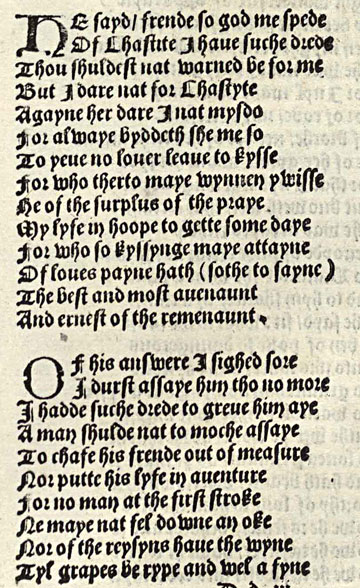 HE sayd/ frende so god me spede
Of Chastite I haue suche drede
Thou shuldest nat warned be for me
But I dare nat for Chastyte
Agayne her dare I nat mysdo
For alwaye byddeth she me so
To yeue no louer leaue to kysse
For who therto maye wynnen ywisse
He of the surplus of the praye
My lyfe in hoope to gette some daye
For who so kyssynge maye attayne
Of loues payne hath (sothe to sayne)
The best and most auenaunt
And ernest of the remenaunt.
OF his answere I sighed sore
I durst assaye him tho no more
I hadde suche drede to greue him aye
A man shulde nat to moche assaye
To chafe his frende out of measure
Nor putte his lyfe in auenture
For no man at the first stroke
Ne maye nat fel downe an oke
Nor of the reysyns haue the wyne
Tyl grapes be rype and wel a fyne